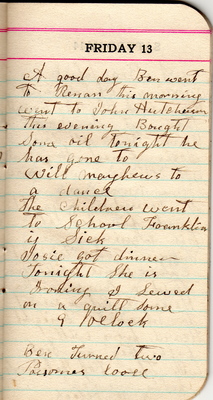 FRIDAY 13
A good day Ben went
to Renan this morning
went to John Hutcheson
this evening Bought
some oil tonight he
has gone to
Will mayhews to
a dance
The Children went
to School Franklin
is Sick
Josie got dinner
Tonight She is
I Sewed
on a quilt some
9 oclock
Ben Turned two
loose